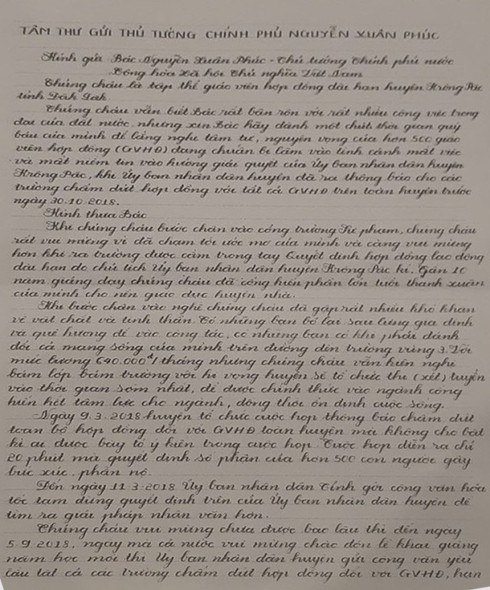 TÂM THƯ GỬI THỦ TƯỚNG CHÍNH PHỦ NGUYỄN XUÂN PHÚC
Kính gửi Bác Nguyễn Xuân Phúc - Thủ tướng Chính phủ nước
Cộng hòa Xã hội Chủ nghĩa Việt Nam
Chúng cháu là tập thể giáo viên hợp đồng dài hạn huyện Krông Pắc
tỉnh Đắk Lắk
Chúng cháu vẫn biết Bác rất bận rộn với rất nhiều công việc trọng
đại của đất nước, nhưng xin Bác hãy dành một chút thời gian quý
báu của mình để lắng nghe tâm tư, nguyện vọng của hơn 500 giáo
viên hợp đồng (GVHĐ) đang chuẩn bị lâm vào tình cảnh mất việc
và mất niềm tin vào hướng giải quyết của Ủy ban nhân dân huyện
Krông Pắc, khi Ủy ban nhân dân huyện đã ra thông báo cho các
trường chấm dứt hợp đồng với tất cả GVHĐ trên toàn huyện trước
ngày 30.10.2018.
Kính thưa Bác
Khi chúng cháu bước chân vào cổng trường Sư phạm, chúng cháu
rất vui mừng vì đã chạm tới ước mơ của mình và càng vui mừng
hơn khi ra trường được cầm trong tay Quyết định hợp đồng lao động
dài hạn do chủ tịch Ủy ban nhân dân huyện Krông Pắc kí, gần 10
năm giảng dạy chúng cháu đã cống hiến phần lớn tuổi thanh xuân
của mình cho nền giáo dục huyện nhà.
Khi bước chân vào nghề chúng cháu đã gặp rất nhiều khó khăn
về vật chất và tinh thần. Có những bạn bỏ lại sau lưng gia đình
và quê hương để vào công tác, có những bạn có khi phải đánh
đổi cả mạng sống của mình trên đường đến trường vùng 3. Với
mức lương 640.000đ/tháng nhưng chúng cháu vẫn kiên nghị
bám lớp bám trường với hi vọng huyện sẽ tổ chức thi (xét) tuyển
vào thời gian sớm nhất, để được chính thức vào ngành cống
hiến hết tâm lực cho ngành, đồng thời ổn định cuộc sống.
Ngày 9.3.2018 huyện tổ chức cuộc họp thông báo chấm dứt
toàn bộ hợp đồng đối với GVHĐ toàn huyện mà không cho bất
kì ai được bày tỏ ý kiến trong cuộc họp. Cuộc họp diễn ra chỉ
20 phút mà quyết định số phận của hơn 500 con người gây
bức xúc, phẫn nộ.
Đến ngày 11.3.2018 Ủy ban nhân dân Tỉnh gửi công văn hỏa
tốc tạm dừng quyết định trên của Ủy ban nhân dân huyện để
tìm ra giải pháp nhân văn hơn.
Chúng cháu vui mừng chưa được bao lâu thì đến ngày
5.9.2018, ngày mà cả nước vui mừng chào đón lễ khai giảng
năm học mới thì Ủy ban nhân dân huyện gửi công văn yêu
cầu tất cả các trường chấm dứt hợp đồng đối với GVHĐ, hạn